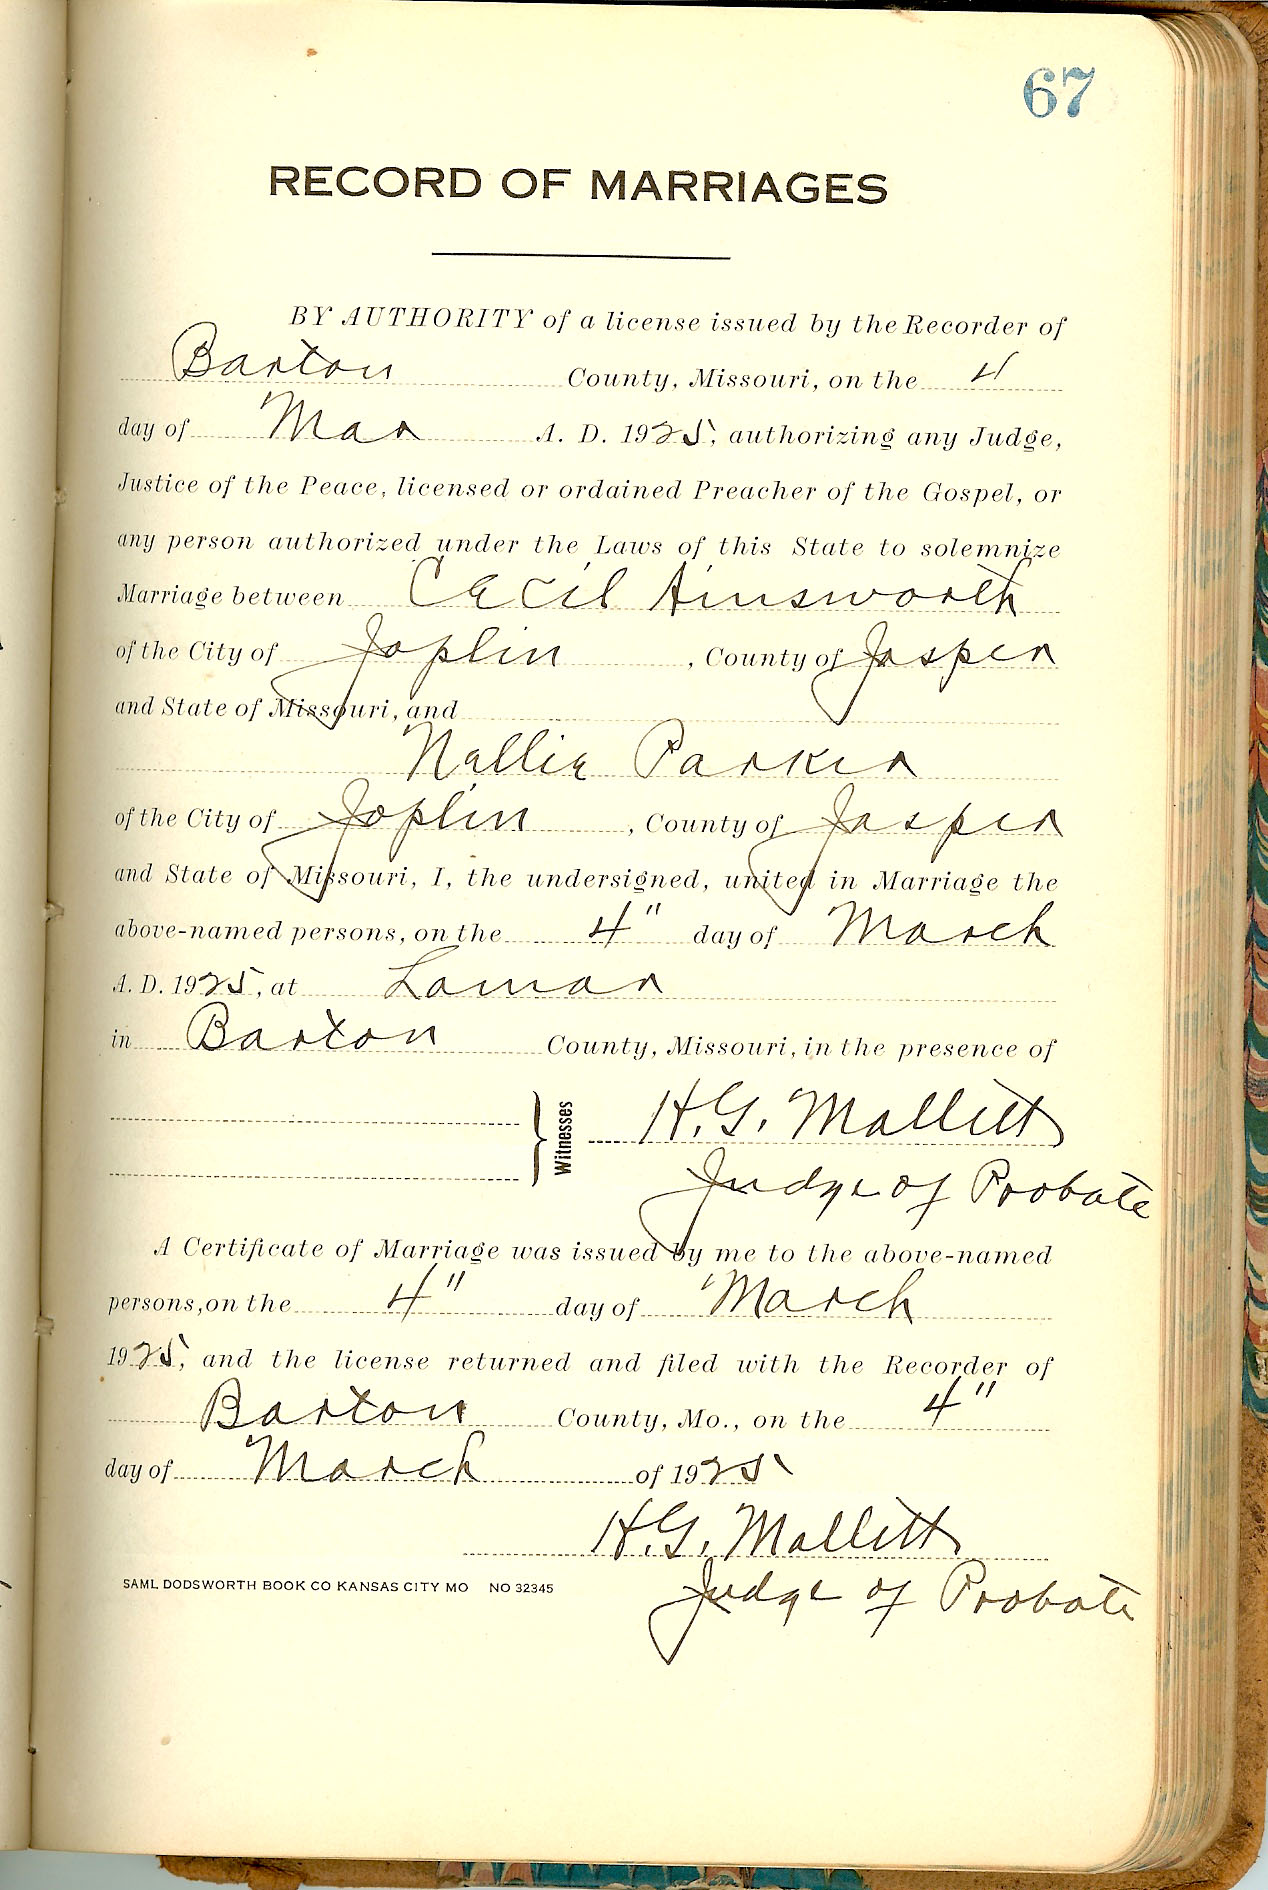 67
RECORD OF MARRIAGES
BY AUTHORITY of a license issued by the Recorder of
Barton County, Missouri, on the 4
day of Mar A. D. 1925, authorizing any Judge,
Justice of the Peace, licensed or ordained Preacher of the Gospel, or
any person authorized under the Laws of this State to solemnize
Marriage between Cecil Ainsworth
of the City of Joplin, County of Jasper
and State of Missouri, and
Nellie Parker
of the City of Joplin, County of Jasper
and State of Missouri, I, the undersigned, united in Marriage the
above-named persons, on the 4" day of March
A. D. 1925, at Lamar
in Barton County, Missouri, in the presence of
Witnesses H. G. Mallitt
Judge of Probate
A Certificate of Marriage was issued by me to the above-named
persons, on the 4" day of March
1925, and the license returned and filed with the Recorder of
Barton County, Mo., on the 4"
day of March of 1925
H. G. Mallitt
SAML DODSWORTH BOOK CO KANSAS CITY MO NO 32345
Judge of Probate